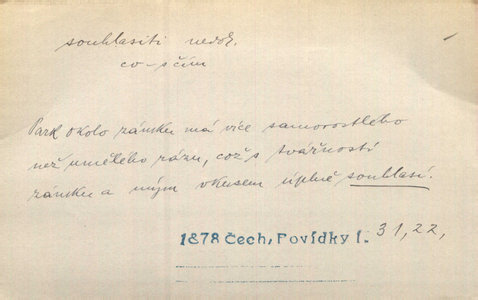 souhlasiti nedok.
co – s čím
Park okolo zámku má více samorostlého
než umělého rázu, což s tvářností
zámku a mým vkusem úplně souhlasí.
1878 Čech, Povídky I. 31, 22,